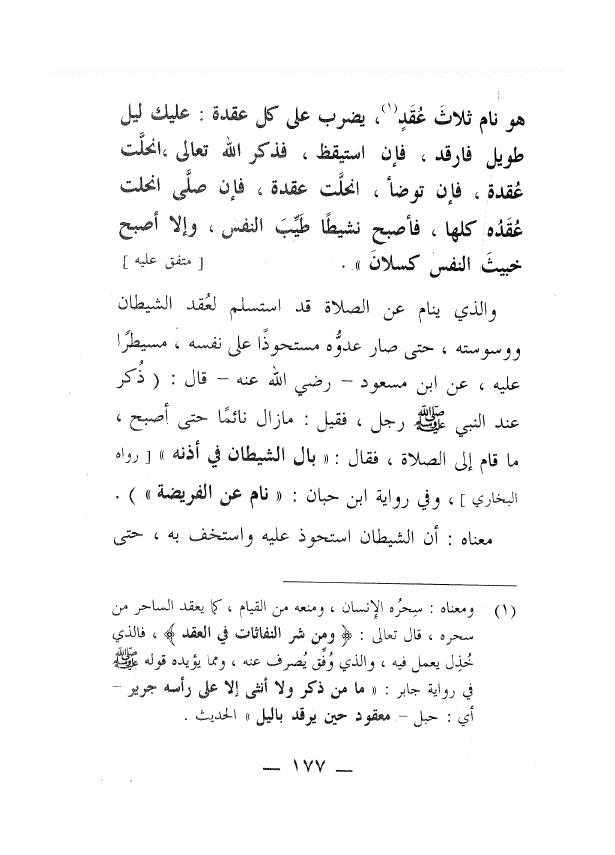 هو نام ثلاثَ عُقَدٍ(١)، يضرب على كل عقدة : عليك ليل
طويل فارقد ، فإن استيقظ ، فذكر الله تعالى ،انحلَّت
عُقدة ، فإن توضأ ، انحلَّت عقدة ، فإن صلَّى انحلت
عُقَدُه كلها ، فأصبح نشيطًا طَيِّبَ النفس ، وإلا أصبح
خبيثَ النفس كسلانَ » . [ متفق عليه ]
والذي ينام عن الصلاة قد استسلم لعُقد الشيطان
ووسوسته ، حتى صار عدوُّه مستحوذًا على نفسه ، مسيطرًا
عليه ، عن ابن مسعود – رضي الله عنه – قال : ( ذُكر
عند النبي ﷺ رجل ، فقيل : مازال نائمًا حتى أصبح ،
ما قام إلى الصلاة ، فقال : « بال الشيطان في أذنه » [ رواه
البخاري ] ، وفي رواية ابن حبان : « نام عن الفريضة » ) .
معناه : أن الشيطان استحوذ عليه واستخف به ، حتى
(١) ومعناه : سِحرُه الإنسان ، ومنعه من القيام ، كما يعقد الساحر من
سحره ، قال تعالى : ﴿ ومن شر النفاثات في العقد ﴾ ، فالذي
خُذِل يعمل فيه ، والذي وُفِّق يُصرف عنه ، ومما يؤيده قوله ﷺ
في رواية جابر : « ما من ذكر ولا أنثى إلا على رأسه جرير –
أي : حبل – معقود حين يرقد باليل » الحديث .
— ١٧٧ —